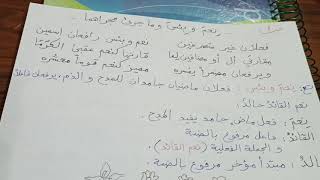 نعم وبئس وما جرى مجراهما
فعلان غير متصرفين نعم وبئس رافعان اسمين
مقارني أل أو مضافين لما قارنها كنعم عقبى الكرما
ويرفعان مضمرا يفسره مميز كنعم قوما معشره
نعم وبئس: فعلان ماضيان جامدان للمدح و الذم، يرفعان فاعلا
نعم القائد خالد:
نعم: فعل ماض جامد يفيد المدح.
القائد: فاعل مرفوع بالضمة
و الجملة الفعلية (نعم القائد):
خالد: مبتدأ مؤخر مرفوع بالضمة.